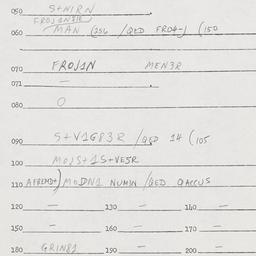 050 S+NIRN
FROJ1N3R
060 MAN (256 /QED FRO4-) (150
070 FROJ1N MEN3R
071 —
080 O
090 S+V1G83R /QED 14 (105
100 MOJS+1S+VE5R
110 MODN1 NUM3N /QED QACCUS
120 — 130 — 140 —
150 — 160 — 170 —
180 GRIN81 190 — 200 —